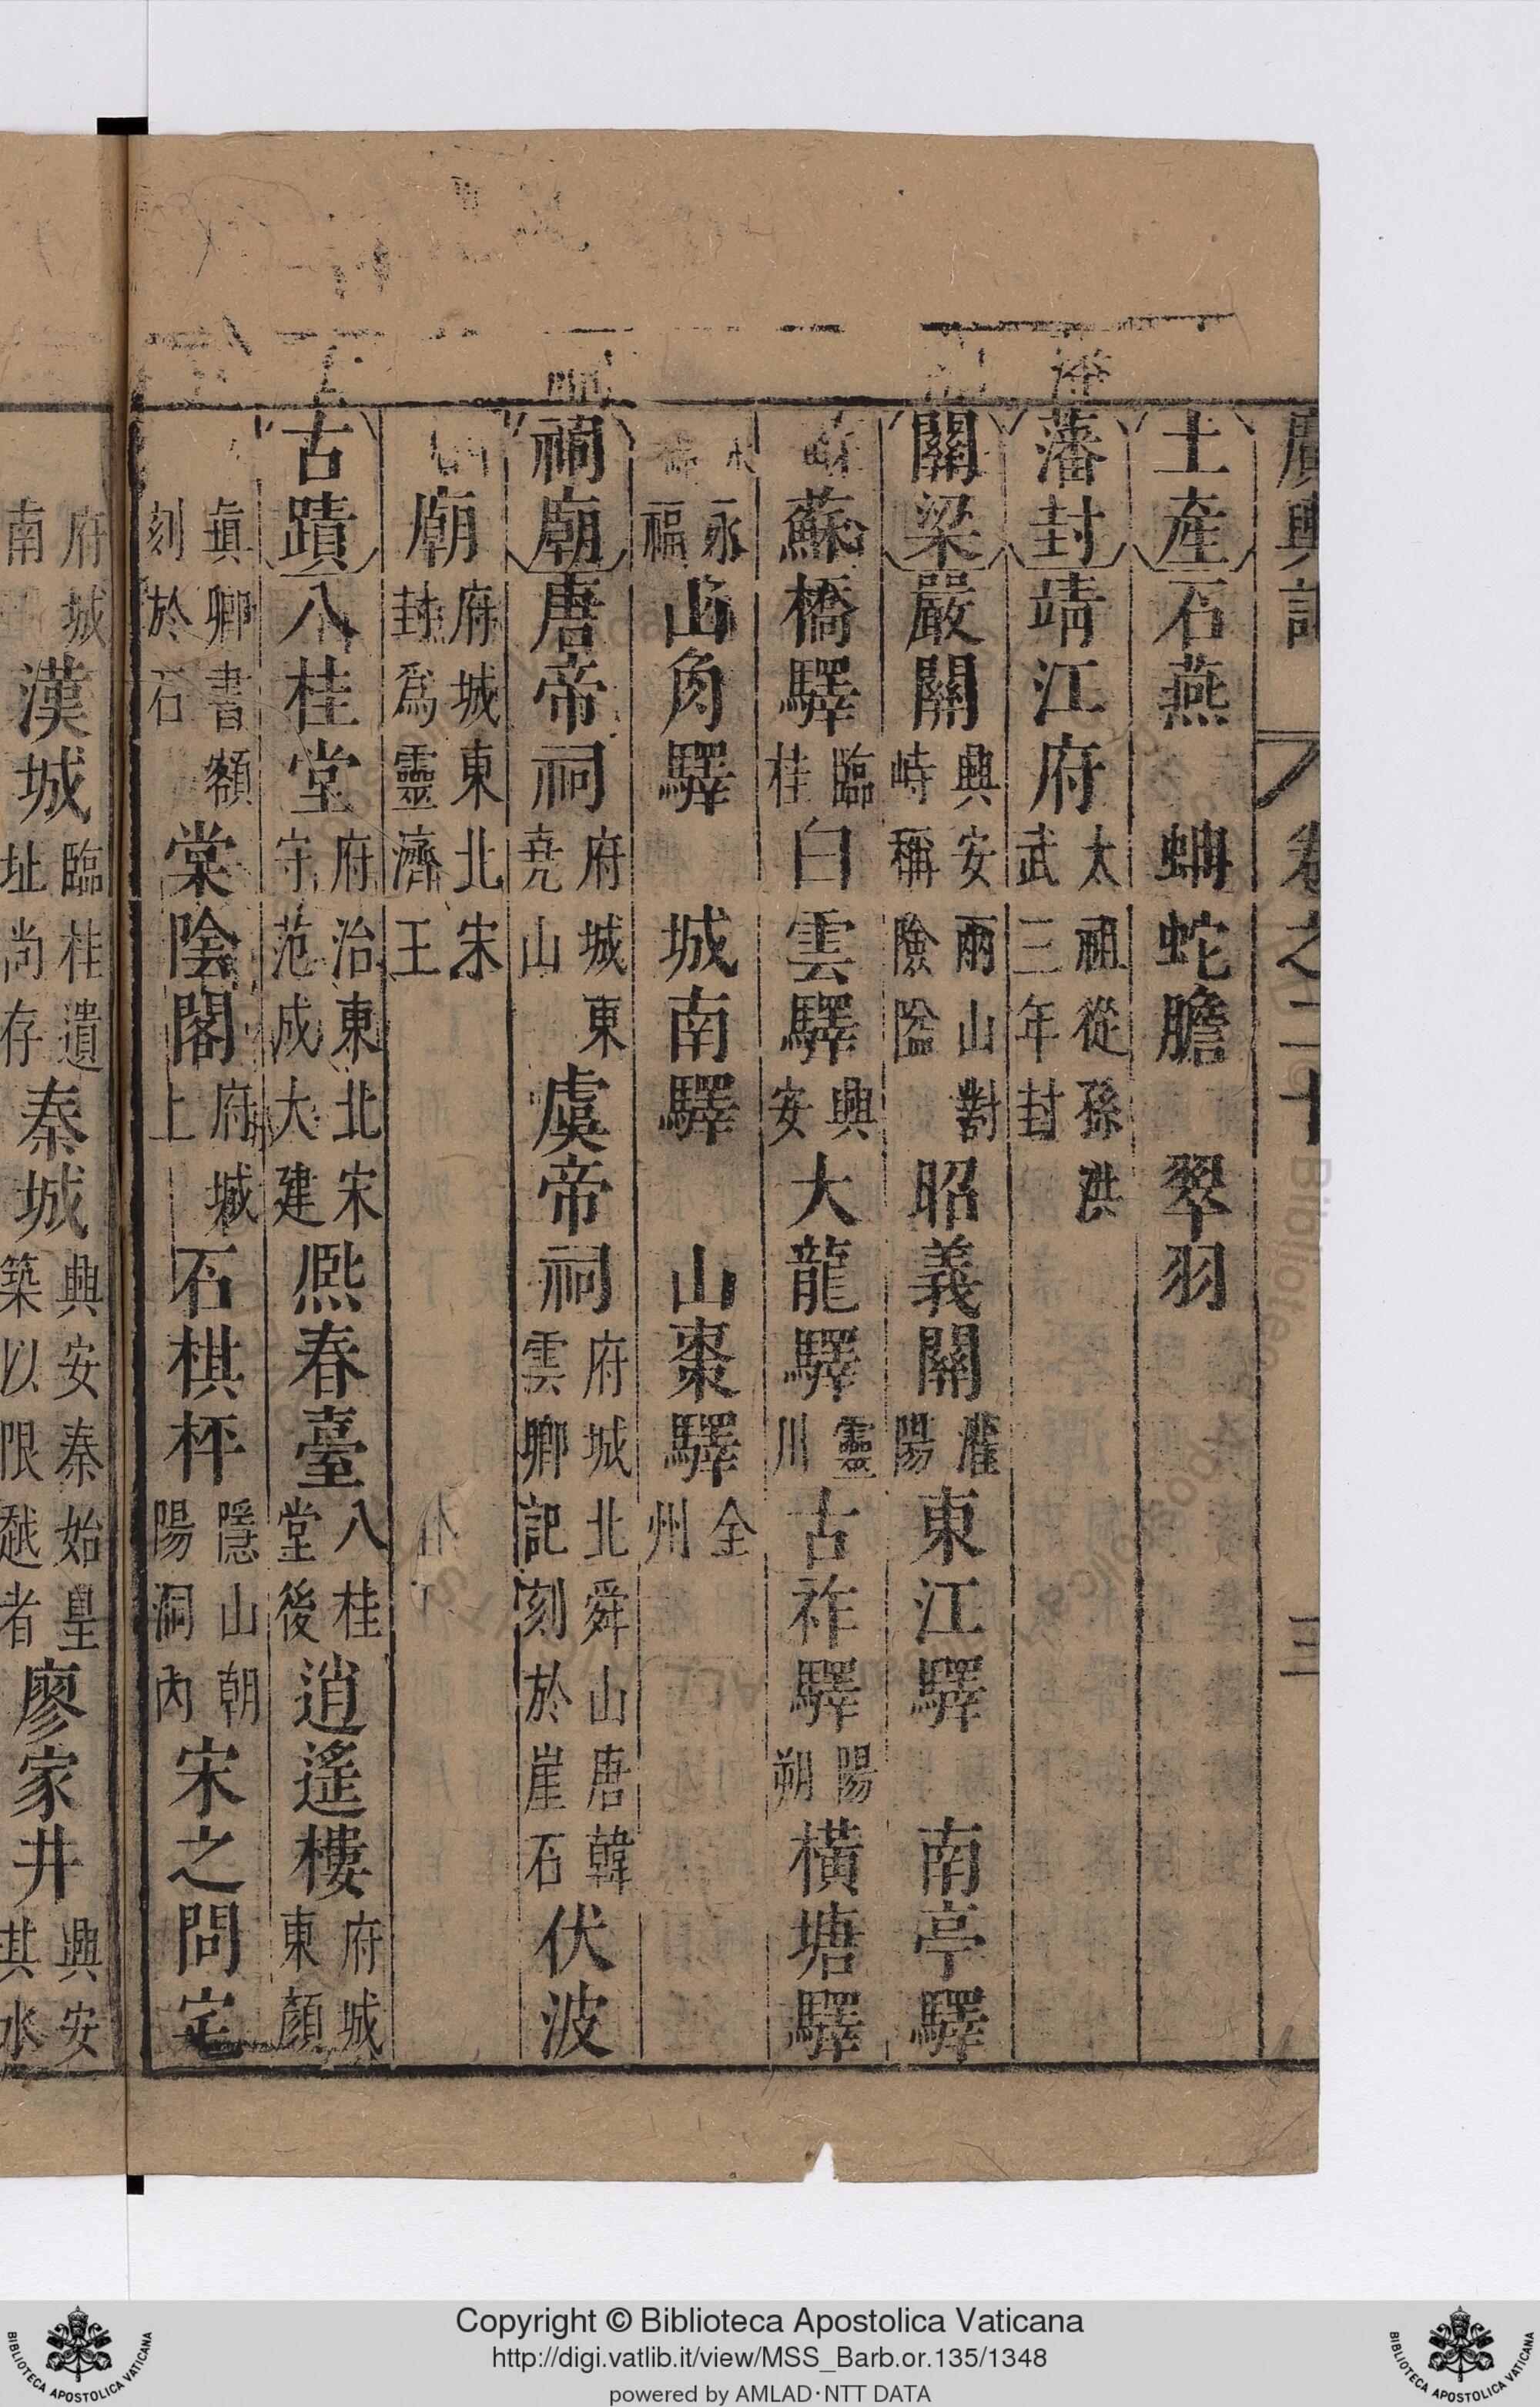 廣輿記 卷之二十 三
土產 石燕 蚺蛇膽 翠羽
藩封 靖江府 太祖從孫洪武三年封
關梁 嚴關 興安兩山對峙稱險隘 昭義關 灌陽 東江驛 南亭驛
蘇橋驛 臨桂 白雲驛 興安 大龍驛 靈川 古祚驛 陽朔 橫塘驛
永福 山角驛 城南驛 山棗驛 全州
祠廟 唐帝祠 府城東堯山 虞帝祠 府城北舜山唐韓雲卿記刻於崖石 伏波
廟 府城東北宋封為靈濟王
古蹟 八桂堂 府治東北宋守范成大建 熈春臺 八桂堂後 逍遙樓 府城東顏
眞卿書額刻於石 棠陰閣 府城上 石棋枰 隱山朝陽洞內 宋之問宅
府城南 漢城 臨桂遺址尚存 秦城 興安秦始皇築以限越者 廖家井 興安其水
Copyright © Biblioteca Apostolica Vaticana
http://digi.vatlib.it/view/MSS_Barb.or.135/1348
powered by AMLAD·NTT DATA
BIBLIOTECA APOSTOLICA VATICANA
BIBLIOTECA APOSTOLICA VATICANA